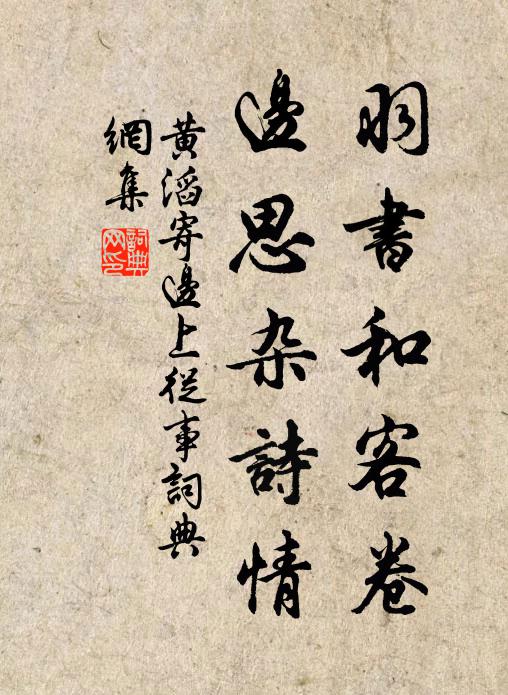 羽書和客卷
邊思杂詩情
黄滔寄邊上從事詞典
網集
詞典
网印